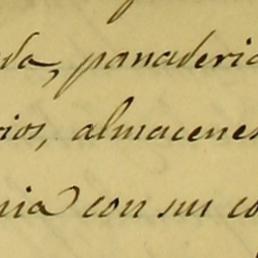 da, panaderia
rios, almacenes
nia con su co